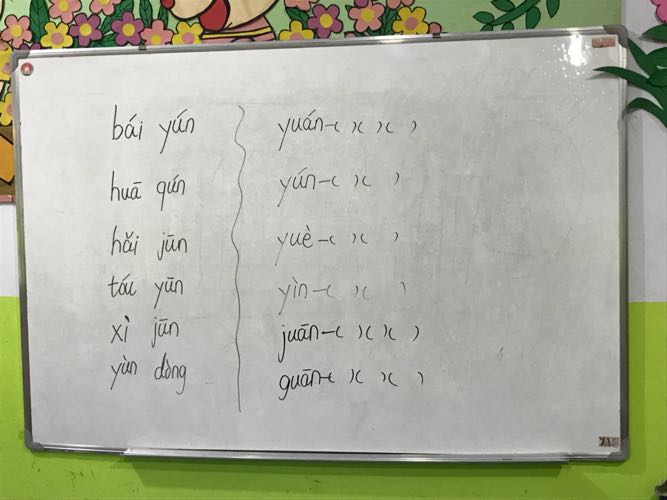 bái yún
huā qún
hǎi jūn
táu yūn
xì jūn
yùn dòng
yuán-( )( )( )
yún-( )( )
yuè-( )( )
yìn-( )( )
juān-( )( )( )
guān-( )( )( )